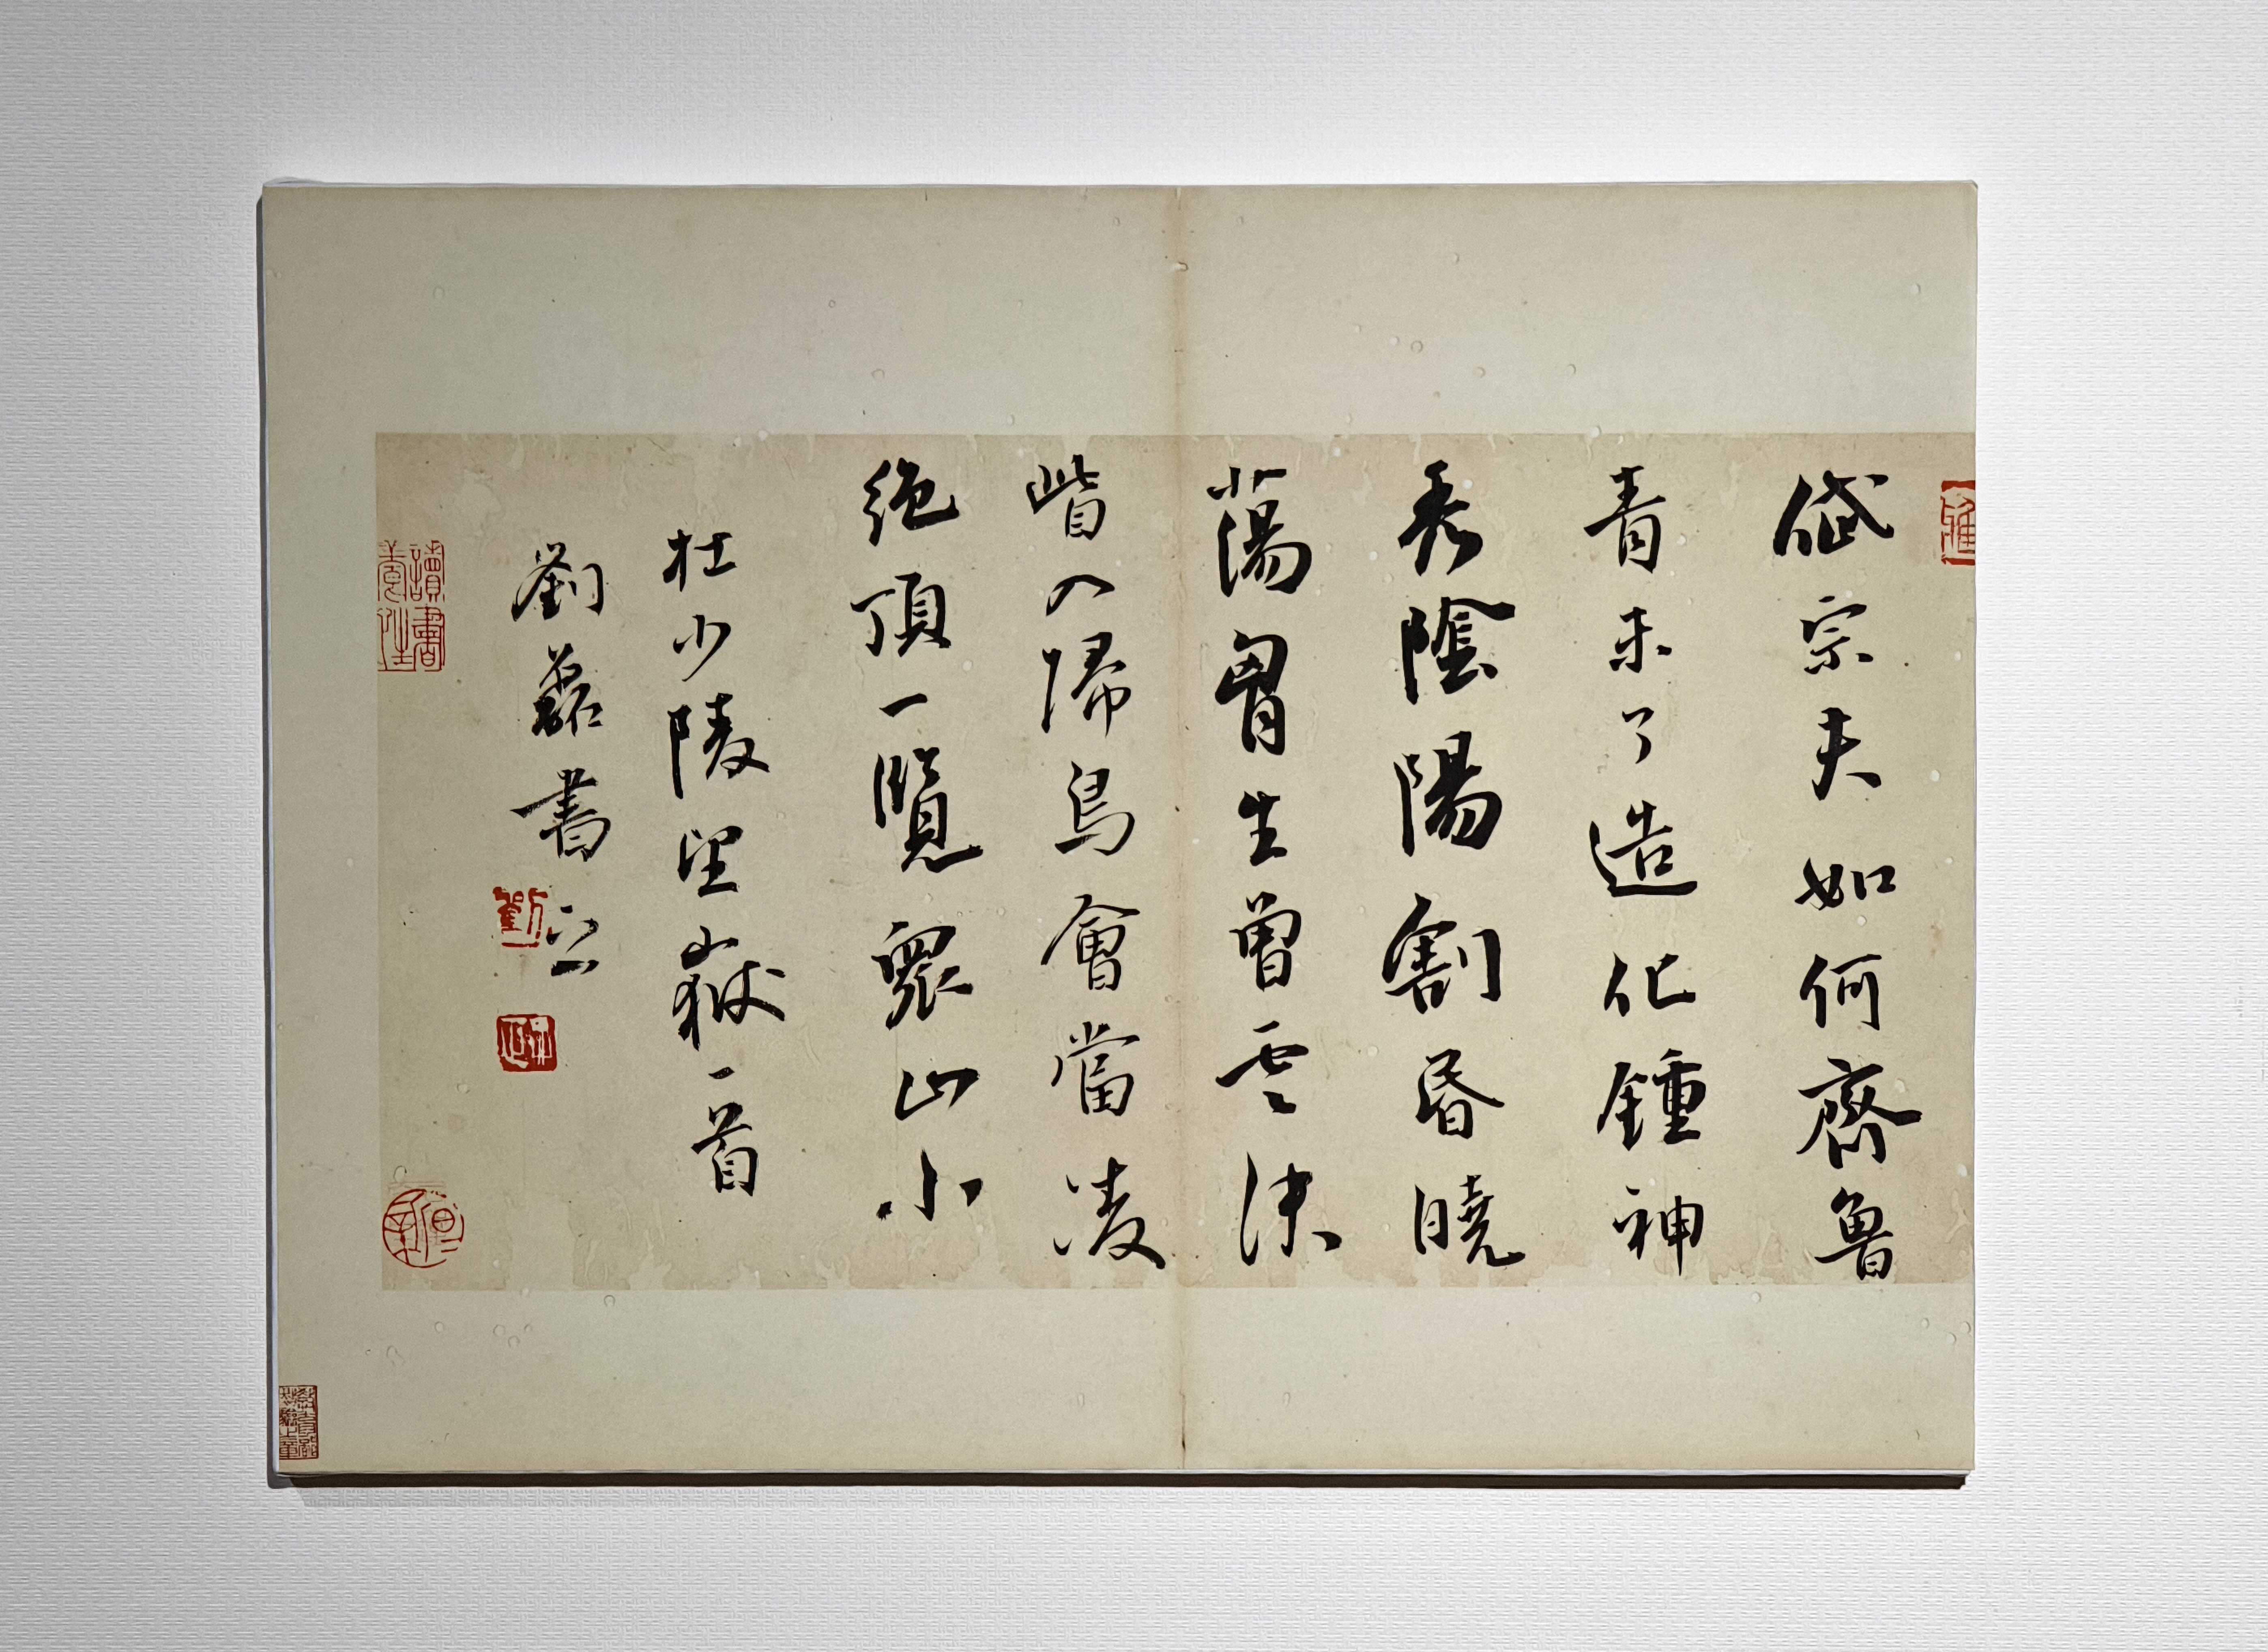 岱宗夫如何齊魯
青未了造化鍾神
秀陰陽割昏曉
蕩胷生曽雲決
眥入歸鳥會當凌
絕頂一覽衆山小
杜少陵望嶽一首
劉藞書
讀書